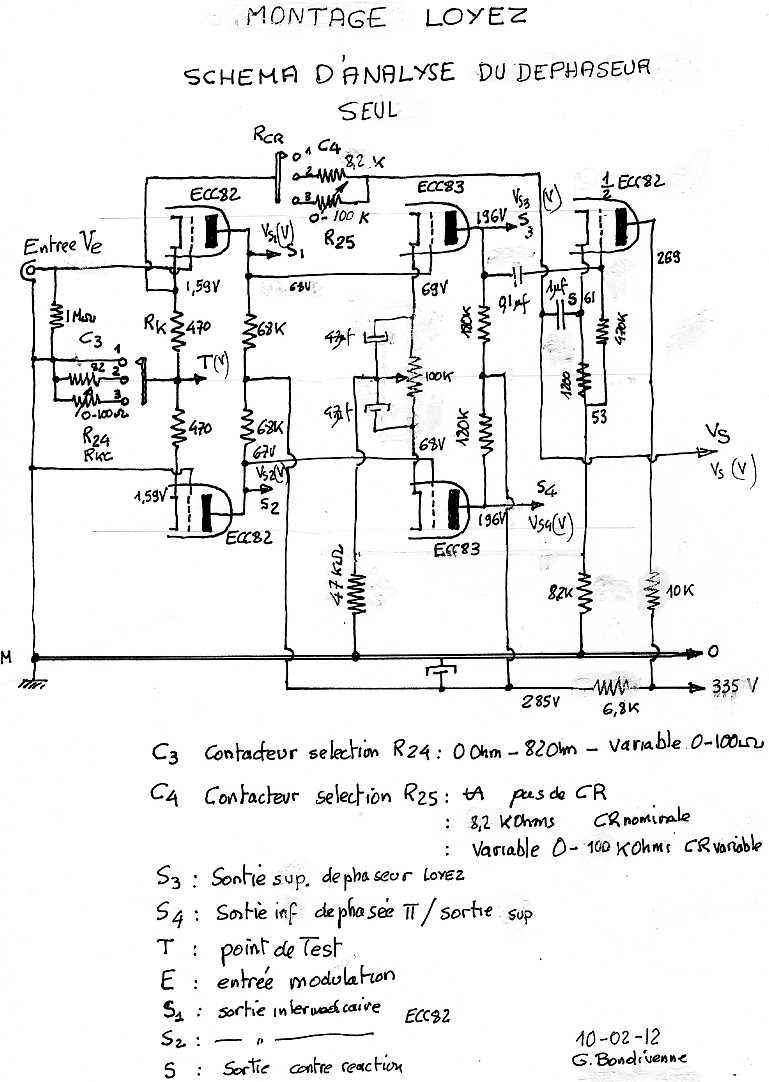 MONTAGE LOYEZ
SCHEMA D'ANALYSE DU DEPHASEUR
SEUL
RCR
1 C4
2 8,2 K
3
0-100 K
R25
ECC82
ECC83
1/2 ECC82
VS3 (V)
S3
196V
269
Entree Ve
VS1(V)
S1
1,59V
68V
69V
0,1µf
1µf
S
61
1MΩ
RK
470
68K
47µf
180K
470K
C3
1
82
2
3
0-100Ω
R24
RKC
T(V)
100K
1200
53
470
68K
47µf
120K
67V
68V
VS2(V)
S2
1,59V
ECC82
ECC83
196V
S4
VS4(V)
VS
VS (V)
47KΩ
82K
10K
M
0
285V
6,8K
335 V
C3 Contacteur selection R24 : 0 Ohm - 82 Ohm - Variable 0-100Ω
C4 Contacteur selection R25 : pas de CR
: 8,2 KOhms CR nominale
: Variable 0- 100 KOhms CR variable
S3 : Sortie sup. dephaseur LOYEZ
S4 : Sortie inf dephasée π / sortie sup
T : point de Test
E : entrée modulation
S1 : sortie intermediaire ECC82
S2 : — " —
S : Sortie contre reaction
10-02-12
G. Bondivenne